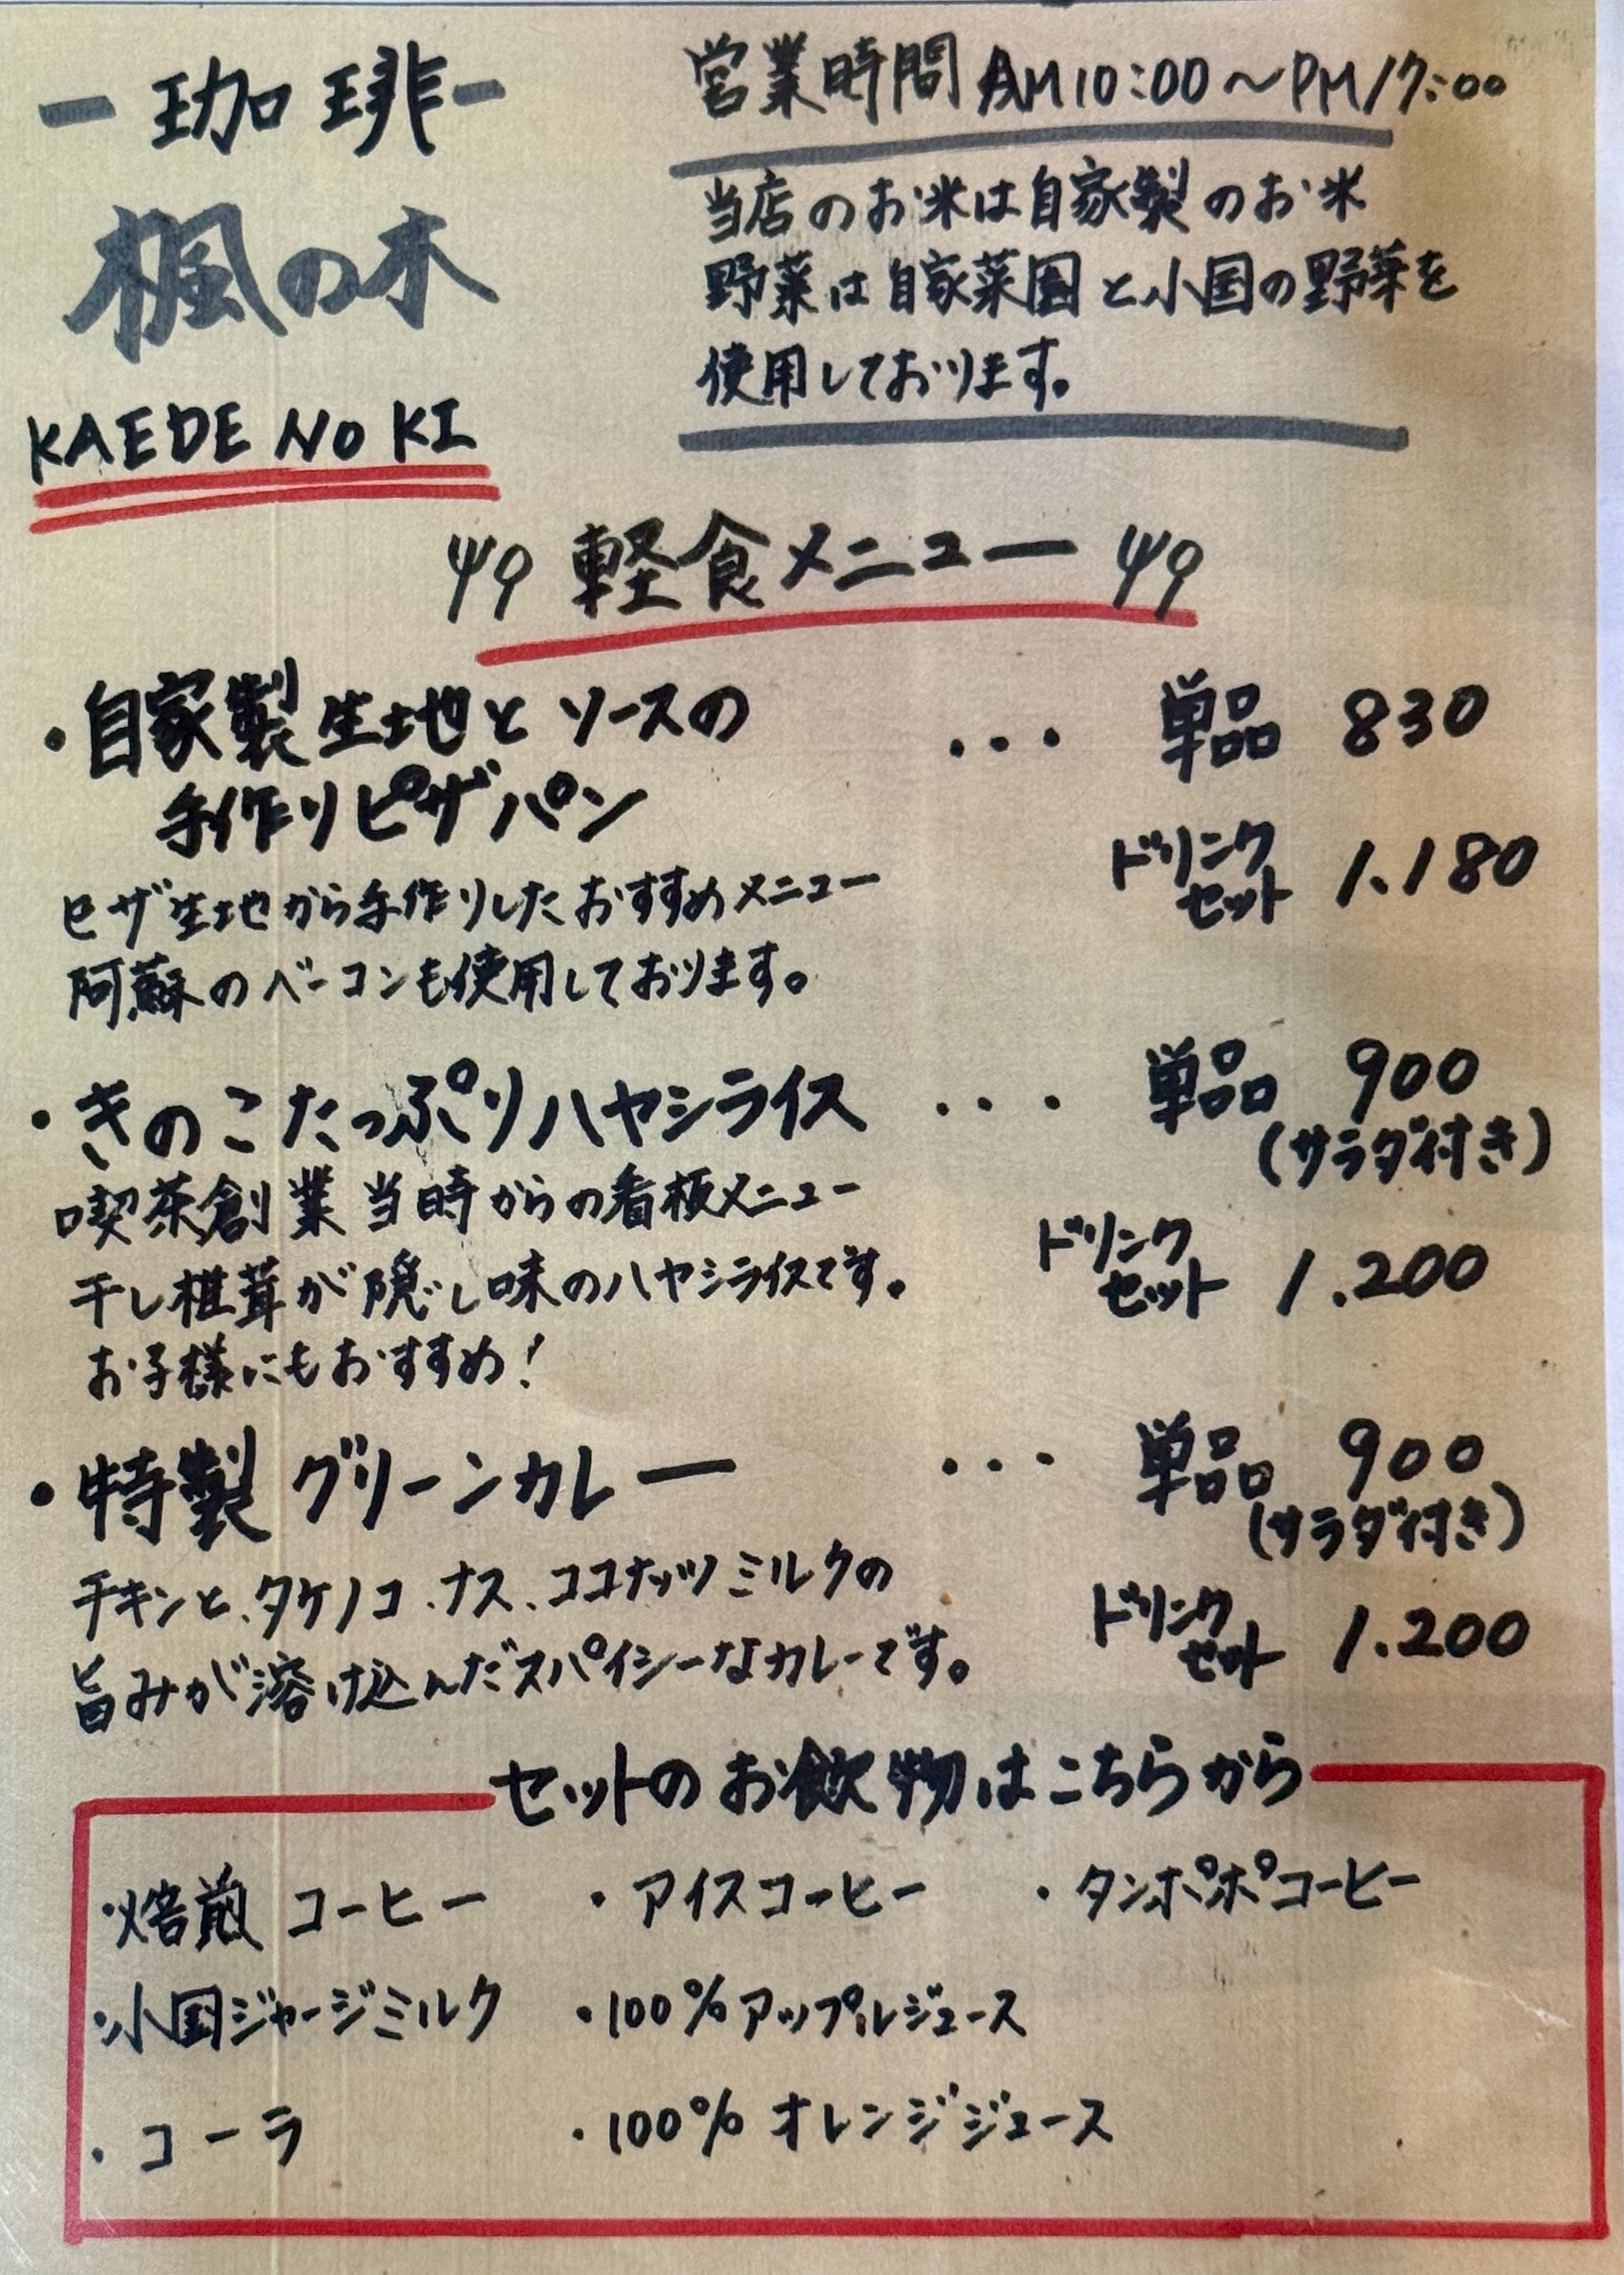 ー珈琲ー
楓の木
KAEDE NO KI
営業時間 AM10:00〜PM17:00
当店のお米は自家製のお米
野菜は自家菜園と小国の野菜を
使用しております。
軽食メニュー
・自家製生地とソースの ・・・ 単品 830
手作りピザパン
ドリンク
セット 1.180
ピザ生地から手作りしたおすすめメニュー
阿蘇のベーコンも使用しております。
・きのこたっぷりハヤシライス ・・・ 単品 900
(サラダ付き)
喫茶創業当時からの看板メニュー
ドリンク
セット 1.200
干し椎茸が隠し味のハヤシライスです。
お子様にもおすすめ!
・特製グリーンカレー ・・・ 単品 900
(サラダ付き)
チキンと、タケノコ、ナス、ココナッツミルクの
ドリンク
セット 1.200
旨みが溶け込んだスパイシーなカレーです。
セットのお飲物はこちらから
・焙煎コーヒー ・アイスコーヒー ・タンポポコーヒー
・小国ジャージミルク ・100%アップルジュース
・コーラ ・100%オレンジジュース